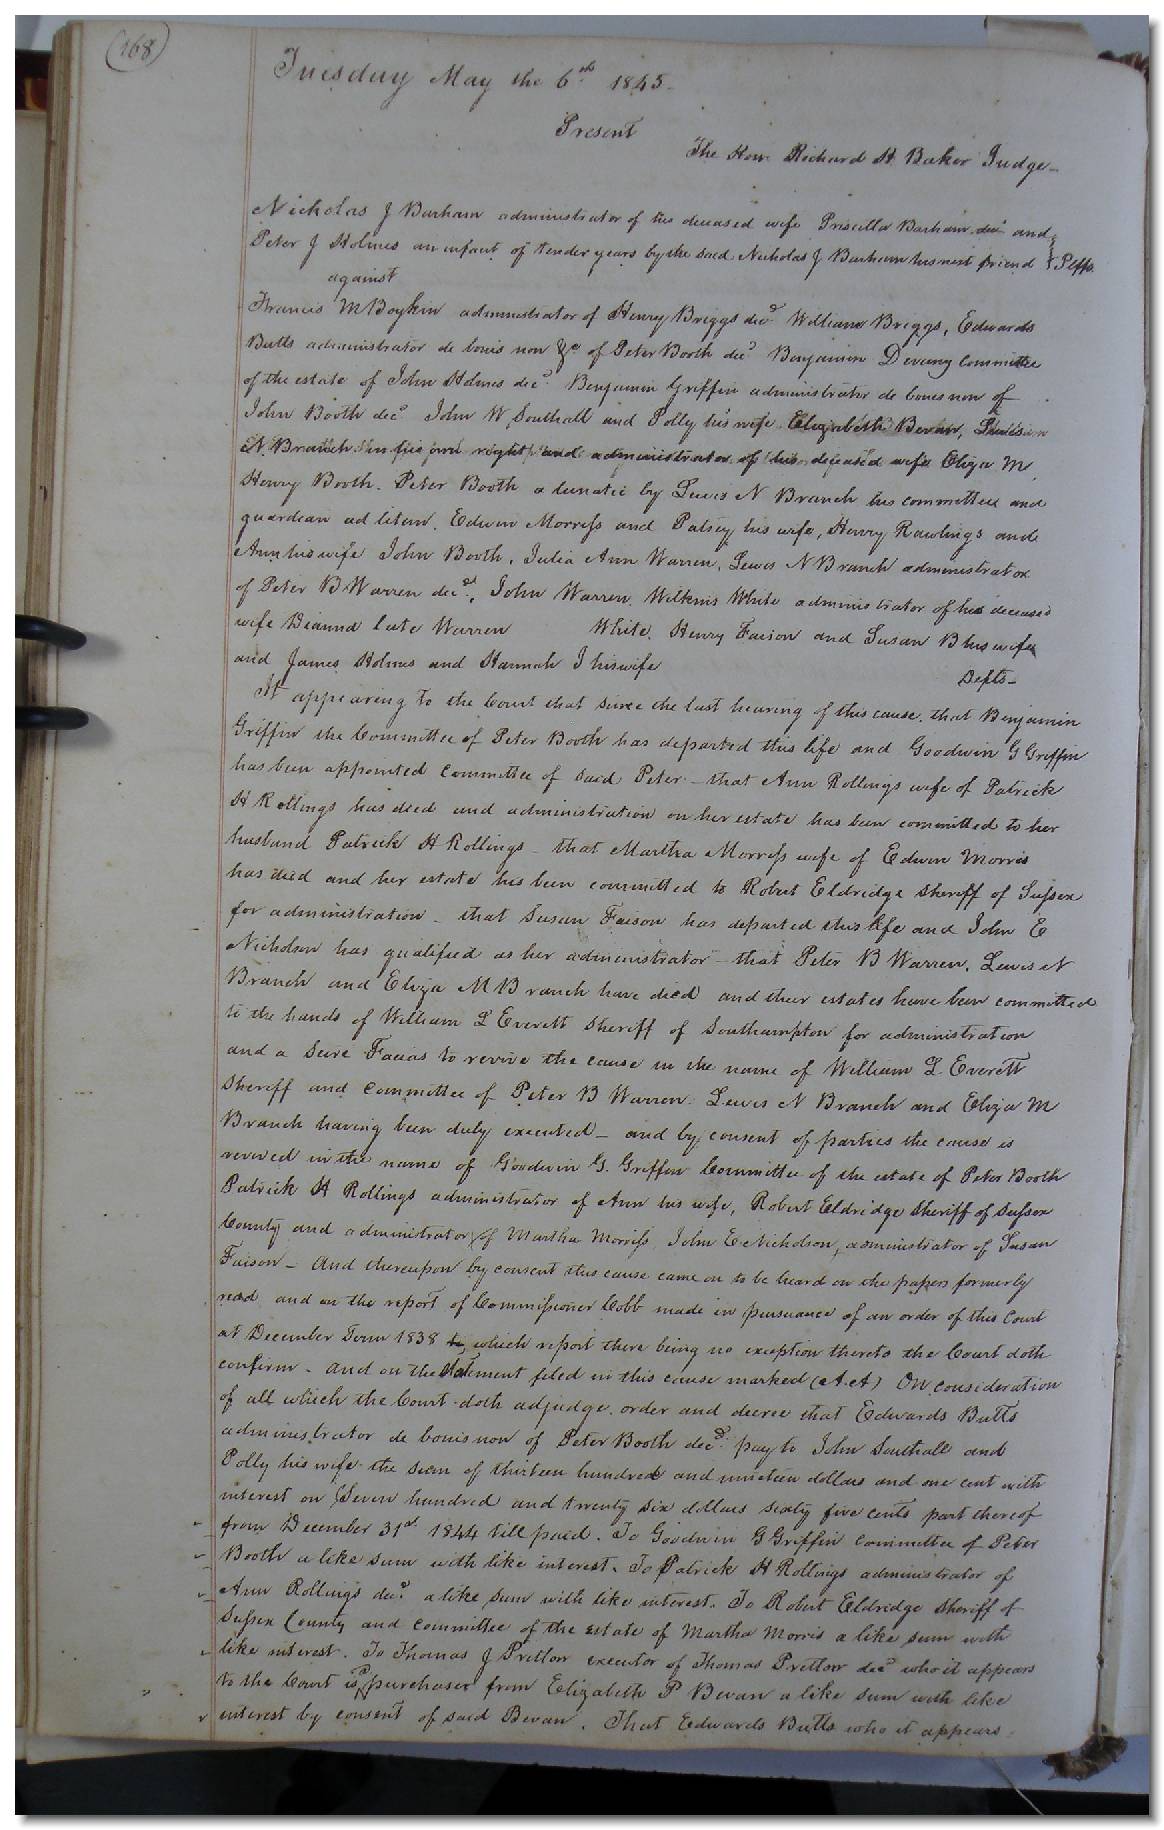 (168)
Tuesday May the 6th 1845.
Present
The Hon. Richard H. Baker Judge
Nicholas J Barham administrator of his deceased wife Priscilla Barham decd and
Peter J Holmes an infant of tender years by the said Nicholas J Barham his next friend } Plffs.
against
Francis M Boykin administrator of Henry Briggs decd William Briggs, Edwards
Butts administrator de bonis non &c of Peter Booth decd Benjamin Devany Committee
of the estate of John Holmes decd. Benjamin Griffin administrator de bonis non of
John Booth decd John W. Southall and Polly his wife Elizabeth Bevan,
N. Branch in his own right and administrator of his deceased wife Eliza M
Henry Booth. Peter Booth a lunatic by Lewis N Branch his committee and
guardian ad litem, Edwin Morriss and Patsey his wife, Henry Rawlings and
Ann his wife John Booth, Julia Ann Warren, Lewis N Branch administrator
of Peter B Warren decd, John Warren, Wilkins White administrator of his deceased
wife late Warren White. Henry Faison and Susan B his wife
and James Holmes and Hannah J his wife Defts
It appearing to the Court that since the last hearing of this cause, that Benjamin
Griffin the Committee of Peter Booth has departed this life and Goodwin G Griffin
has been appointed Committee of said Peter - that Ann Rollings wife of Patrick
H Rollings has died and administration on her estate has been committed to her
husband Patrick H Rollings - that Martha Morriss wife of Edwin Morris
has died and her estate has been committed to Robert Eldridge Sheriff of Sussex
for administration - that Susan Faison has departed this life and John E
Nicholson has qualified as her administrator - that Peter B Warren, Lewis N
Branch and Eliza M Branch have died and their estates have been committed
to the hands of William L Everett Sheriff of Southampton for administration
and a Scire Facias to revive the cause in the name of William L. Everett
Sheriff and Committee of Peter B Warren. Lewis N Branch and Eliza M
Branch having been duly executed - and by consent of parties the cause is
revived in the name of Goodwin G. Griffin Committee of the estate of Peter Booth
Patrick H Rollings administrator of Ann his wife, Robert Eldridge Sheriff of Sussex
County and administrator of Martha Morriss, John E Nicholson, administrator of Susan
Faison - And thereupon by consent this cause came on to be heard on the papers formerly
read, and on the report of Commissioner Cobb made in pursuance of an order of this Court
at December Term 1838 to which report there being no exception thereto the Court doth
confirm - And on the statement filed in this cause marked (A.A) On consideration
of all which the Court doth adjudge, order and decree that Edwards Butts
administrator de bonis non of Peter Booth decd. pay to John Southall and
Polly his wife the sum of thirteen hundred and nineteen dollars and one cent with
interest on Seven hundred and twenty six dollars sixty five cents part thereof
from December 31st 1844 till paid. To Goodwin G Griffin Committee of Peter
Booth a like sum with like interest. To Patrick H Rollings administrator of
Ann Rollings decd a like sum with like interest. To Robert Eldridge Sheriff of
Sussex County and Committee of the estate of Martha Morris a like sum with
like interest. To Thomas J Pretlow executor of Thomas Pretlow decd who it appears
to the Court is purchaser from Elizabeth P Bevan a like sum with like
interest by consent of said Bevan. That Edwards Butts who it appears